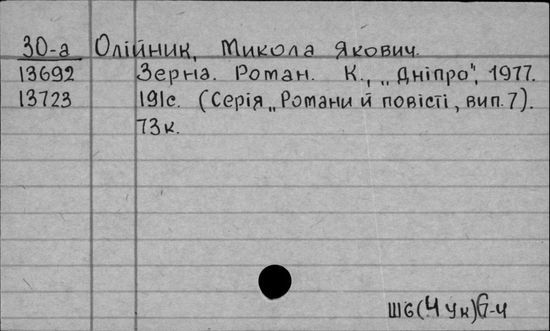 30-а Олійник, Микола Якович.
13692 Зерна. Роман. К., „Дніпро", 1977.
13723 191с. (Серія „Романи й повісті, вип. 7).
73к.
Ш6(4Ук)6-4